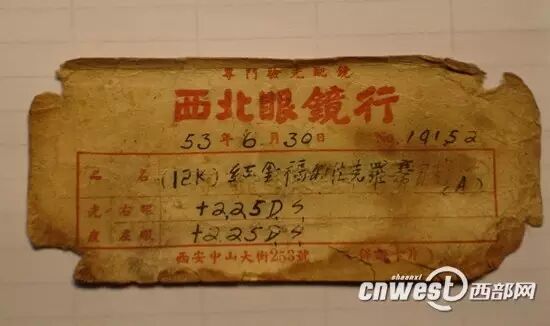 專門驗光配鏡
西北眼鏡行
53年6月30日 No. 19152
品名 (12K)紅金福 克羅賽 (A)
光 右眼 +2.25D.S
度 左眼 +2.25D.S
西安中山大街253號
shaanxi
cnwest西部网